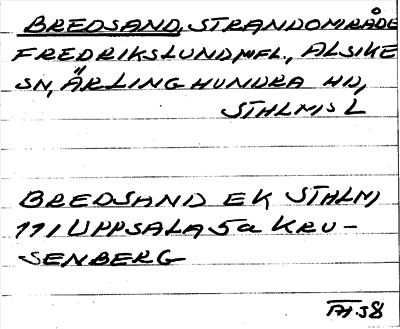 BREDSAND, STRANDOMRÅDE
FREDRIKSLUND MFL., ALSIKE
SN, ÄRLINGHUNDRA HD,
STHLMS L
BREDSAND EK STHLM,
111 UPPSALA 5a KRU-
SENBERG